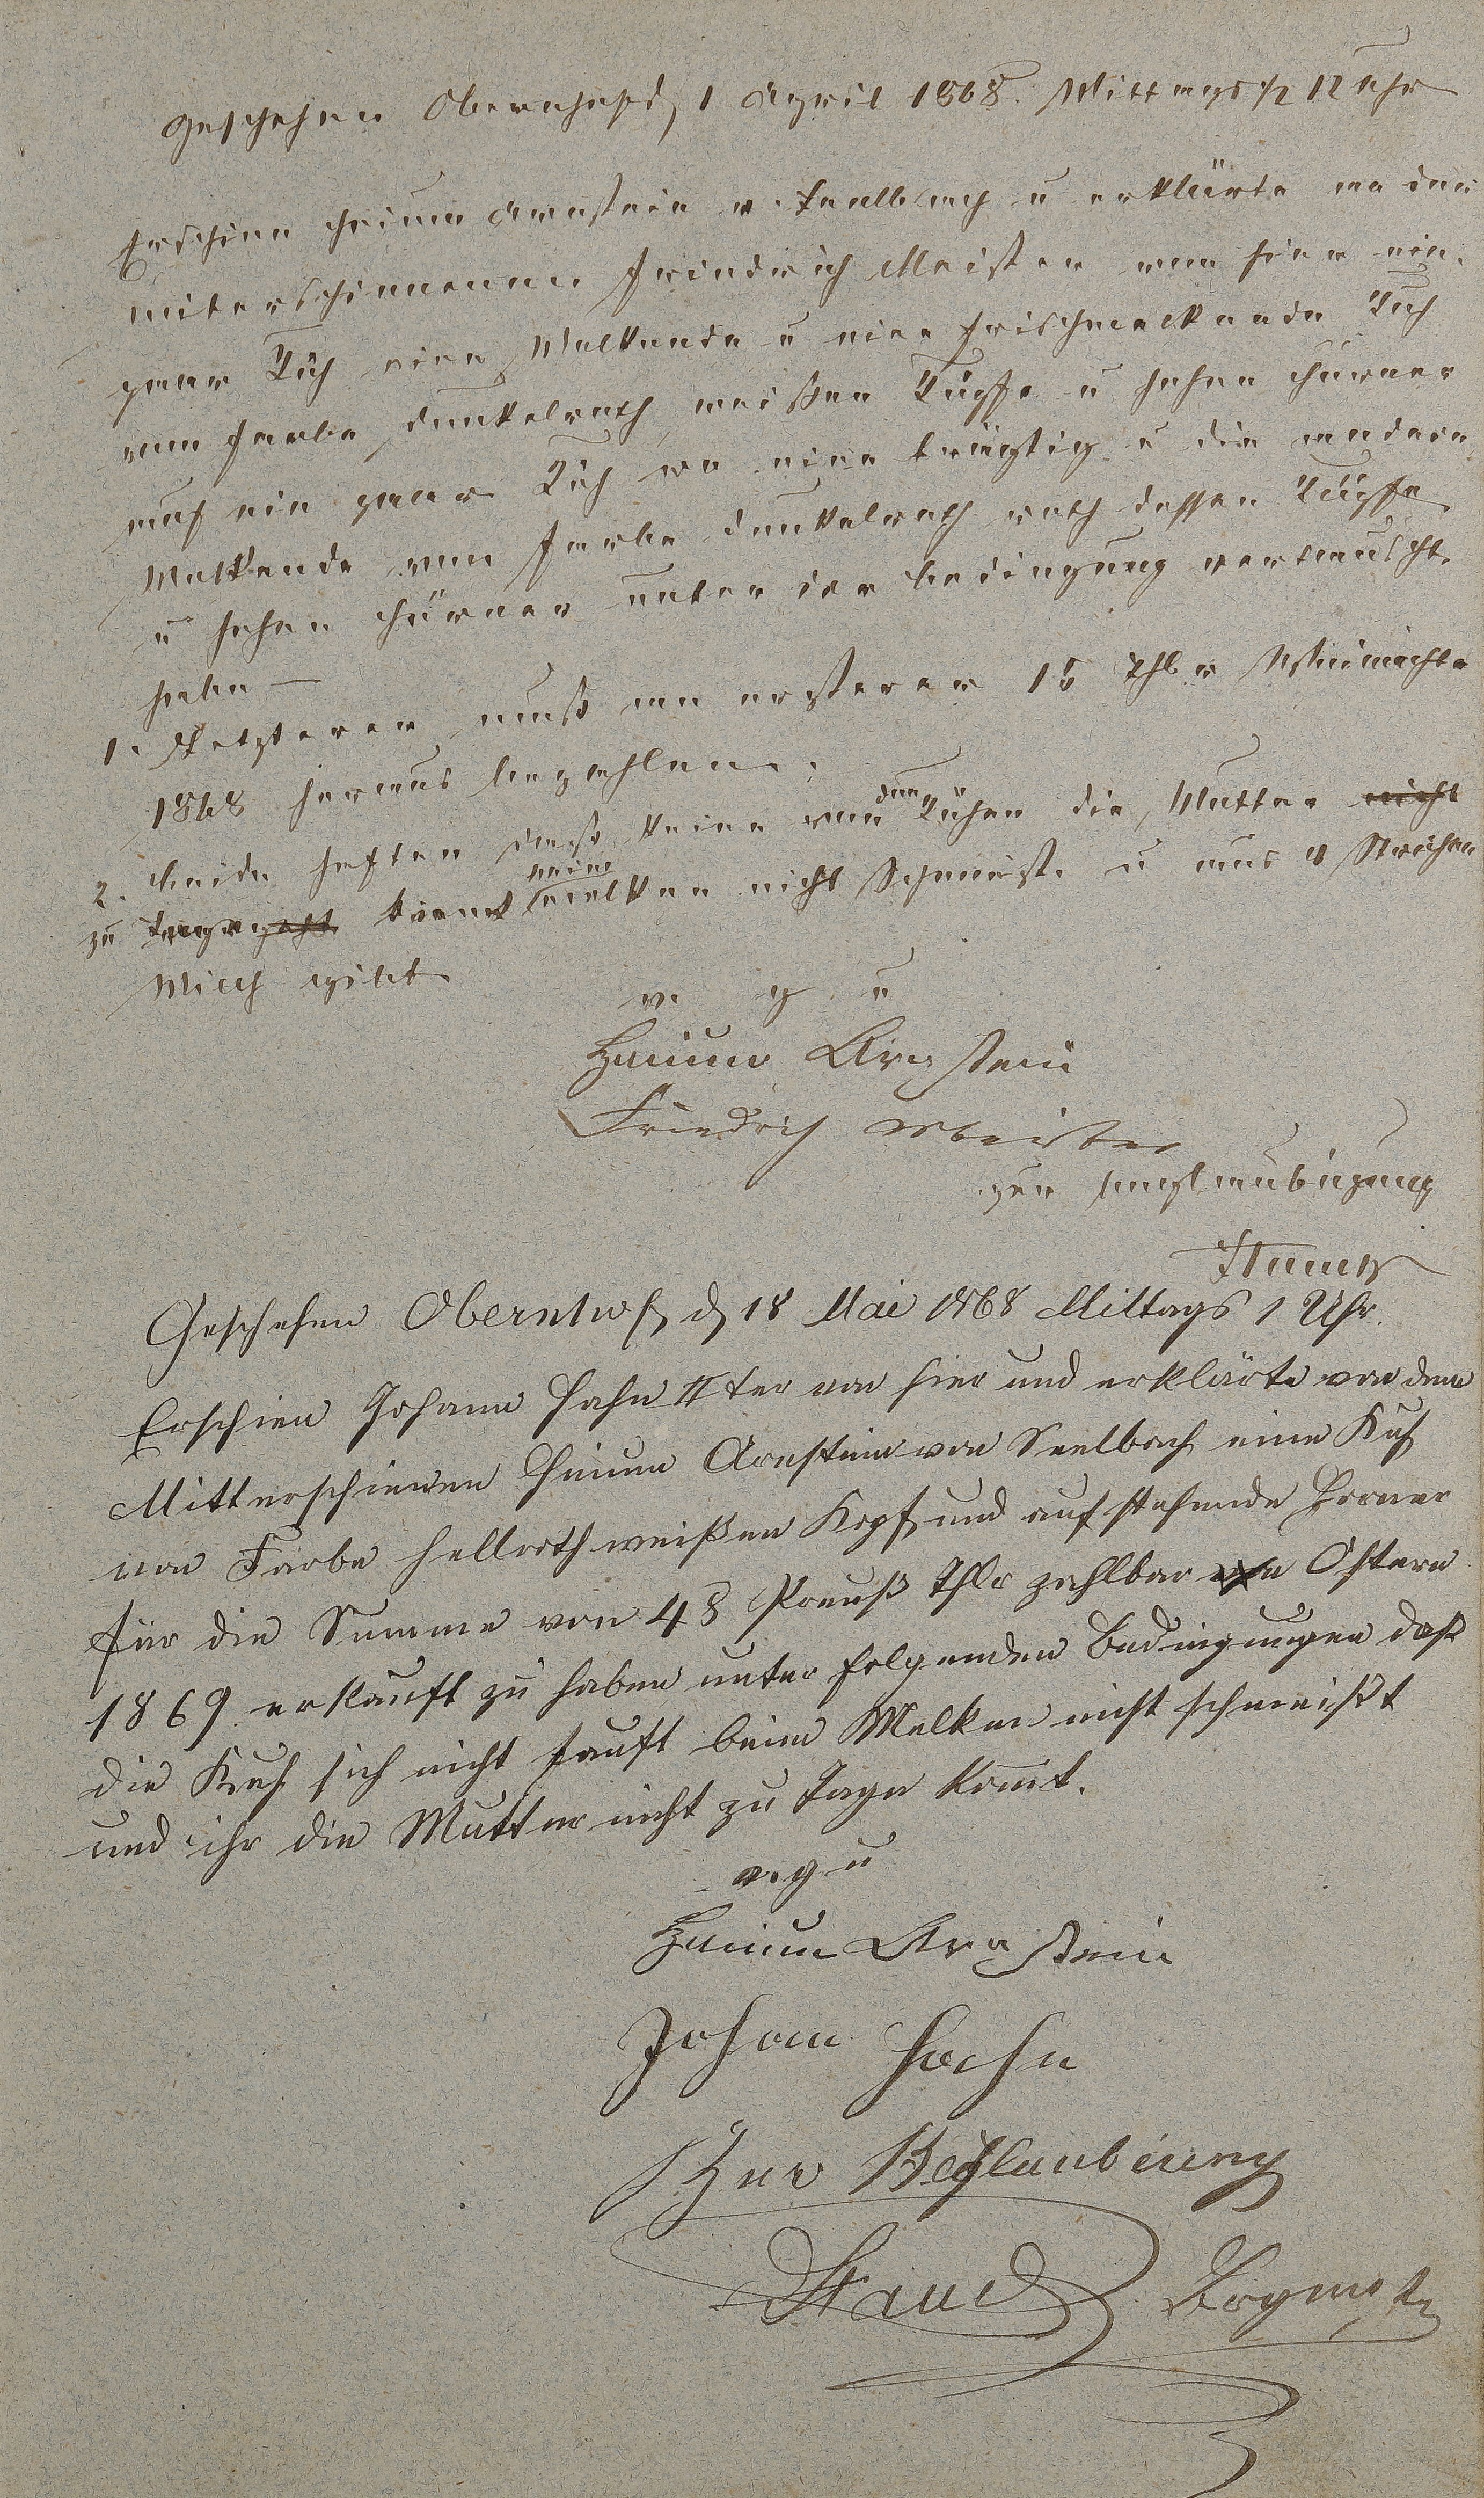 Geschehen Oberndorf d 1 April 1868. Mittags ½ 12 Uhr
Erschien Heium Arnstein v. Seelbach u erklärte an den
miterschienenen Friedrich Meister von hier ein
paar Küh eine Melkende u eine frischmelkende Kuh
von Farbe dunkelroth weißen Köpfe u hohen Hürner
auf ein paar Küh wo eine trägtig u die andere
Melkende von Farbe dunkelroth roth dessen Köpfe
u hohen Hürner unter der bedingung vertauscht
haben —
1. Letzterer muß an ersteren 15 Thlr Weinachte
1868 heraus bezahlen.
2. beide haften daß keine von den Kühen die Mutter nicht
zu Tage geht kommt beim melken nicht Schmeist u aus 4 Strichen
Milch gibt
v. g. u
Heium Arnstein
Friedrich Meister
zur beglaubigung
Staud
Geschehen Oberndorf d 18 Mai 1868 Mittags 1 Uhr.
Erschien Johann Hahn IIter von hier und erklärte von dem
Mitterschienen Heium Arnstein von Seelbach eine Kuh
von Farbe hellroth weißen Kopf und aufstehende Hörner
für die Summe von 48 Preuß Thlr zahlbar Ostern
1869 erkauft zu haben unter folgenden Bedingungen daß
die Kuh sich nicht sauft beim Melken nicht schmeißt
und ihr die Mutter nicht zu Tage komt.
v. g u
Heium Arnstein
Johann Hahn
Zur Beglaubigung
Staud Bgrmstr